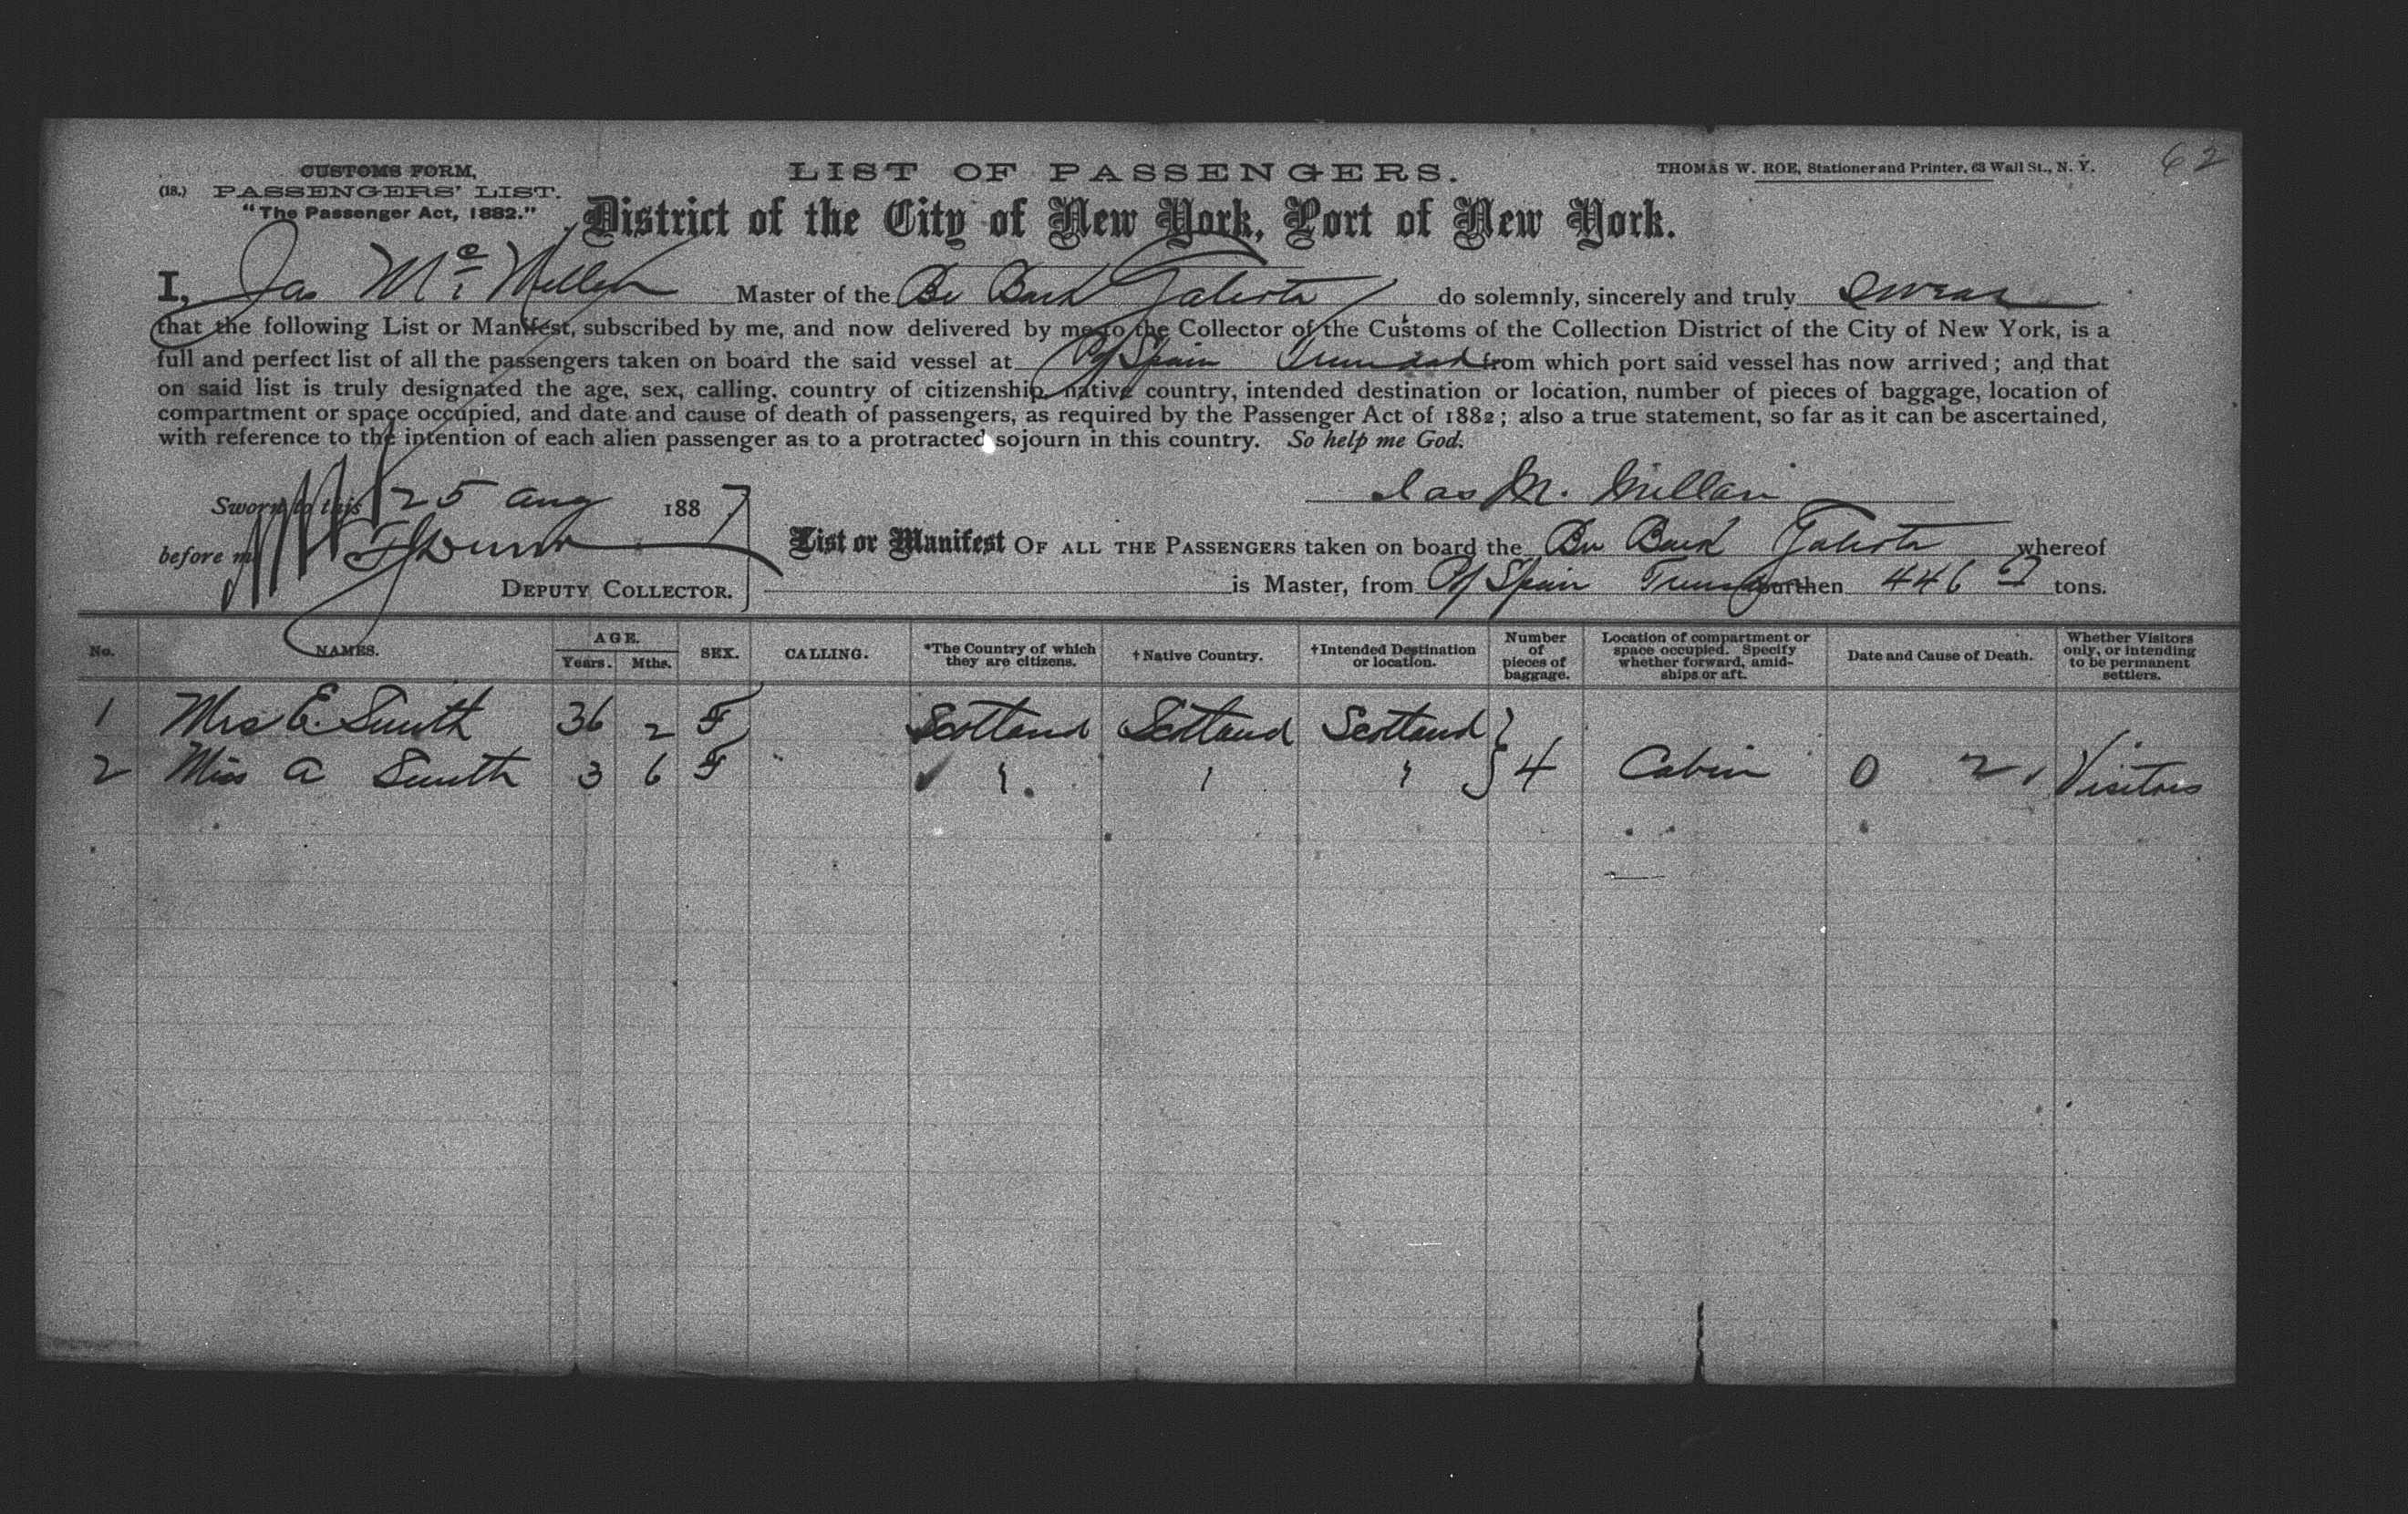 62
CUSTOMS FORM,
(18.) PASSENGERS' LIST.
"The Passenger Act, 1882."
LIST OF PASSENGERS.
THOMAS W. ROE, Stationer and Printer, 63 Wall St., N. Y.
District of the City of New York, Port of New York.
I, Jas Mc Millan Master of the Br Bark do solemnly, sincerely and truly swear
that the following List or Manifest, subscribed by me, and now delivered by me to the Collector of the Customs of the Collection District of the City of New York, is a
full and perfect list of all the passengers taken on board the said vessel at P of Spain Trinidad from which port said vessel has now arrived; and that
on said list is truly designated the age, sex, calling, country of citizenship, native country, intended destination or location, number of pieces of baggage, location of
compartment or space occupied, and date and cause of death of passengers, as required by the Passenger Act of 1882; also a true statement, so far as it can be ascertained,
with reference to the intention of each alien passenger as to a protracted sojourn in this country. So help me God.
Sworn to this 25 Aug 1887
Jas M. Millan
before me
DEPUTY COLLECTOR.
List or Manifest OF ALL THE PASSENGERS taken on board the Br Bark whereof
is Master, from P of Spain Trinidad burthen 446 tons.
No. NAMES. AGE. Years. Mths. SEX. CALLING. *The Country of which they are citizens. †Native Country. †Intended Destination or location. Number of pieces of baggage. Location of compartment or space occupied. Specify whether forward, amidships or aft. Date and Cause of Death. Whether Visitors only, or intending to be permanent settlers.
1 Mrs E. Smith 36 2 F Scotland Scotland Scotland
2 Miss A Smith 3 6 F " " " 4 Cabin 0 2 Visitors